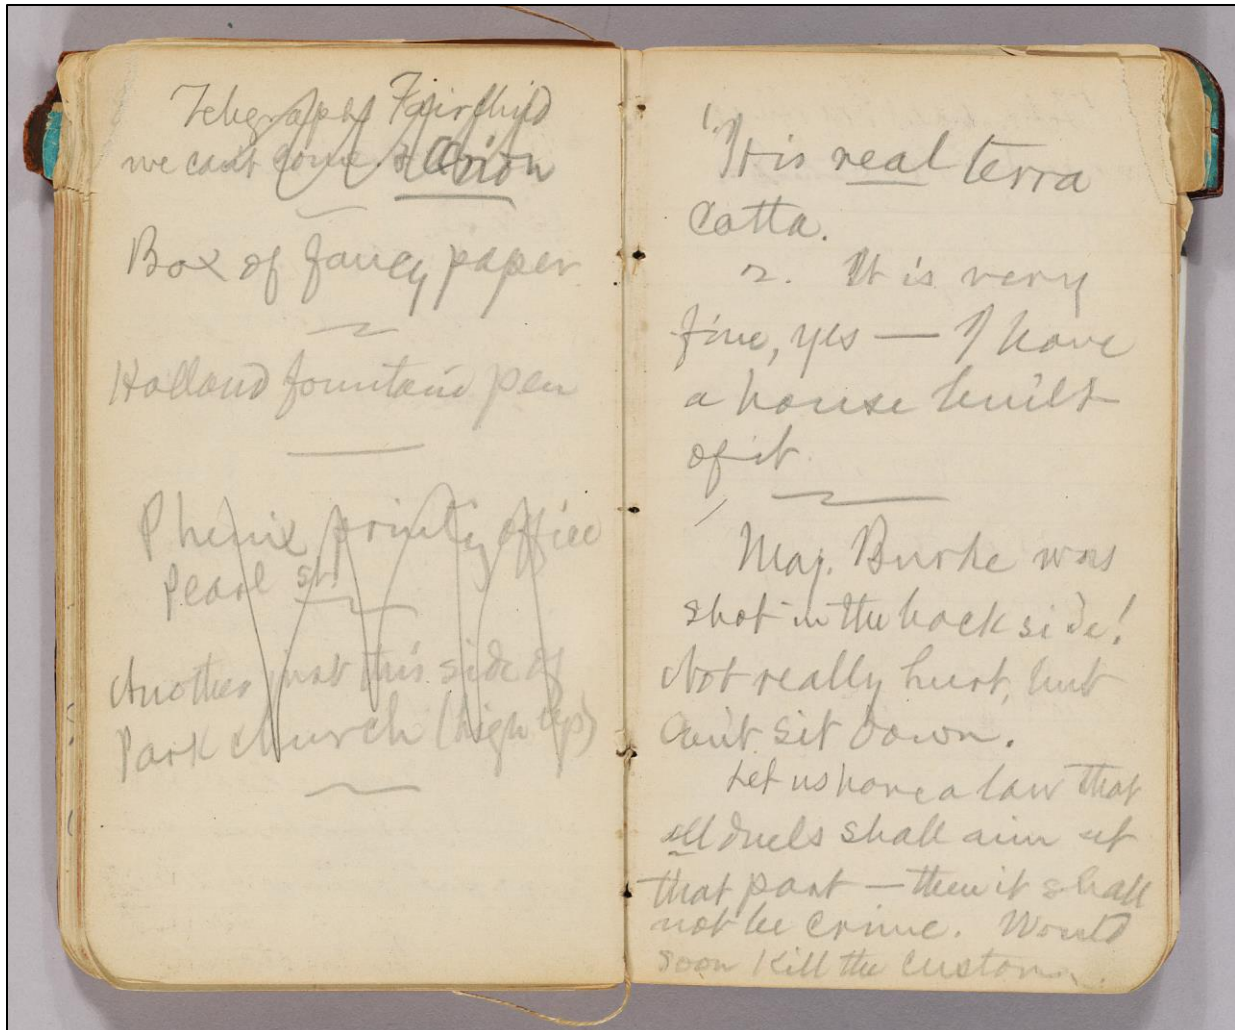 Telegraph Fairchild
we can't come. & Orion
Box of fancy paper
Holland fountain pen
Phenix printg office
Pearl st.
Another just this side of
Park church (high up)
"It is real terra
cotta.
2. It is very
fine, yes — I have
a house built
of it.
Maj. Burke was
shot in the back side!
Not really hurt, but
can't sit down.
Let us have a law that
all duels shall aim at
that part — then it shall
not be crime. Would
soon kill the custom.